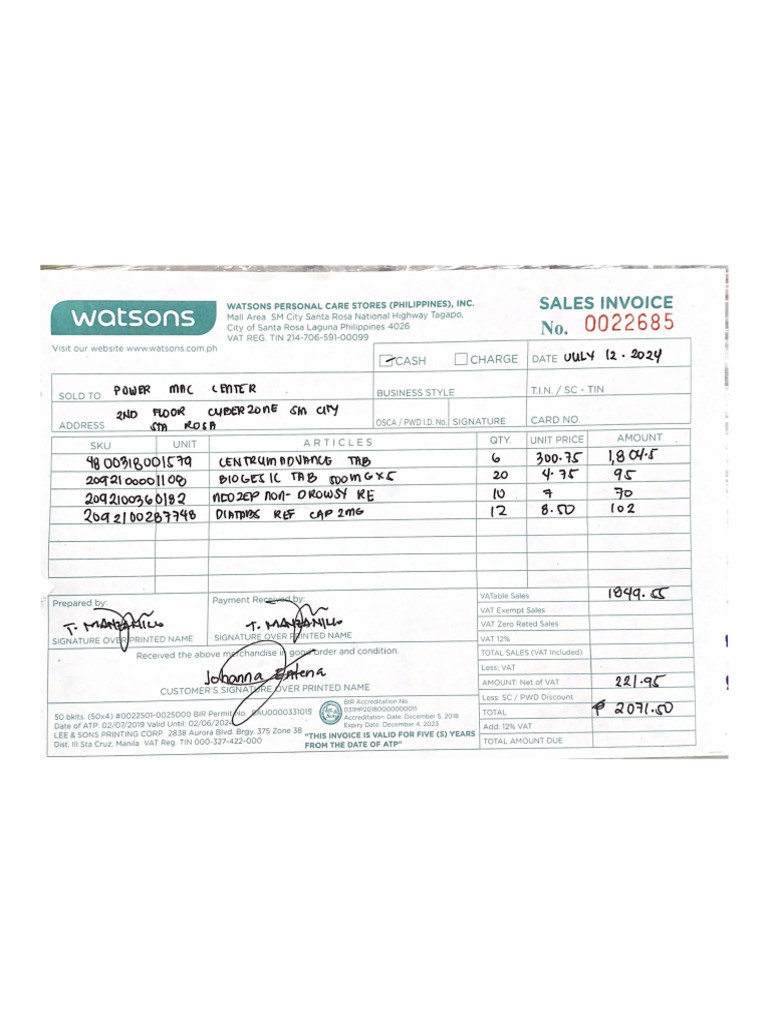 watsons
WATSONS PERSONAL CARE STORES (PHILIPPINES), INC.
Mall Area SM City Santa Rosa National Highway Tagapo,
City of Santa Rosa Laguna Philippines 4026
VAT REG. TIN 214-706-591-00099
SALES INVOICE
No. 0022685
Visit our website www.watsons.com.ph
CASH CHARGE DATE JULY 12 - 2024
SOLD TO POWER MAC CENTER BUSINESS STYLE T.I.N. / SC - TIN
ADDRESS 2ND FLOOR CYBERZONE SM CITY
STA ROSA OSCA / PWD I.D. No. SIGNATURE CARD NO.
SKU UNIT ARTICLES QTY. UNIT PRICE AMOUNT
4800318001579 CENTRUM ADVANCE TAB 6 300.75 1,804.5
2092100001108 BIOGESIC TAB 500MGX5 20 4.75 95
2092100360182 NEOZEP NON-DROWSY RE 10 7 70
2092100287748 DIATABS REF CAP 2MG 12 8.50 102
Prepared by: Payment Received by:
T. MANZANILLO T. MANZANILLO
SIGNATURE OVER PRINTED NAME SIGNATURE OVER PRINTED NAME
Received the above merchandise in good order and condition.
Johanna
CUSTOMER'S SIGNATURE OVER PRINTED NAME
VATable Sales 1849.55
VAT Exempt Sales
VAT Zero Rated Sales
VAT 12%
TOTAL SALES (VAT Included)
Less: VAT
AMOUNT: Net of VAT 221.95
Less: SC / PWD Discount
TOTAL ₱ 2071.50
Add: 12% VAT
TOTAL AMOUNT DUE
50 bklts. (50x4) #0022501-0025000 BIR Permit No. BAU0000331015
Date of ATP: 02/07/2019 Valid Until: 02/06/2024
LEE & SONS PRINTING CORP. 2838 Aurora Blvd. Brgy. 375 Zone 38
Dist. III Sta Cruz, Manila VAT Reg. TIN 000-327-422-000
BIR Accreditation No.
039MP20180000000011
Accreditation Date: December 5, 2018
Expiry Date: December 4, 2023
"THIS INVOICE IS VALID FOR FIVE (5) YEARS
FROM THE DATE OF ATP"